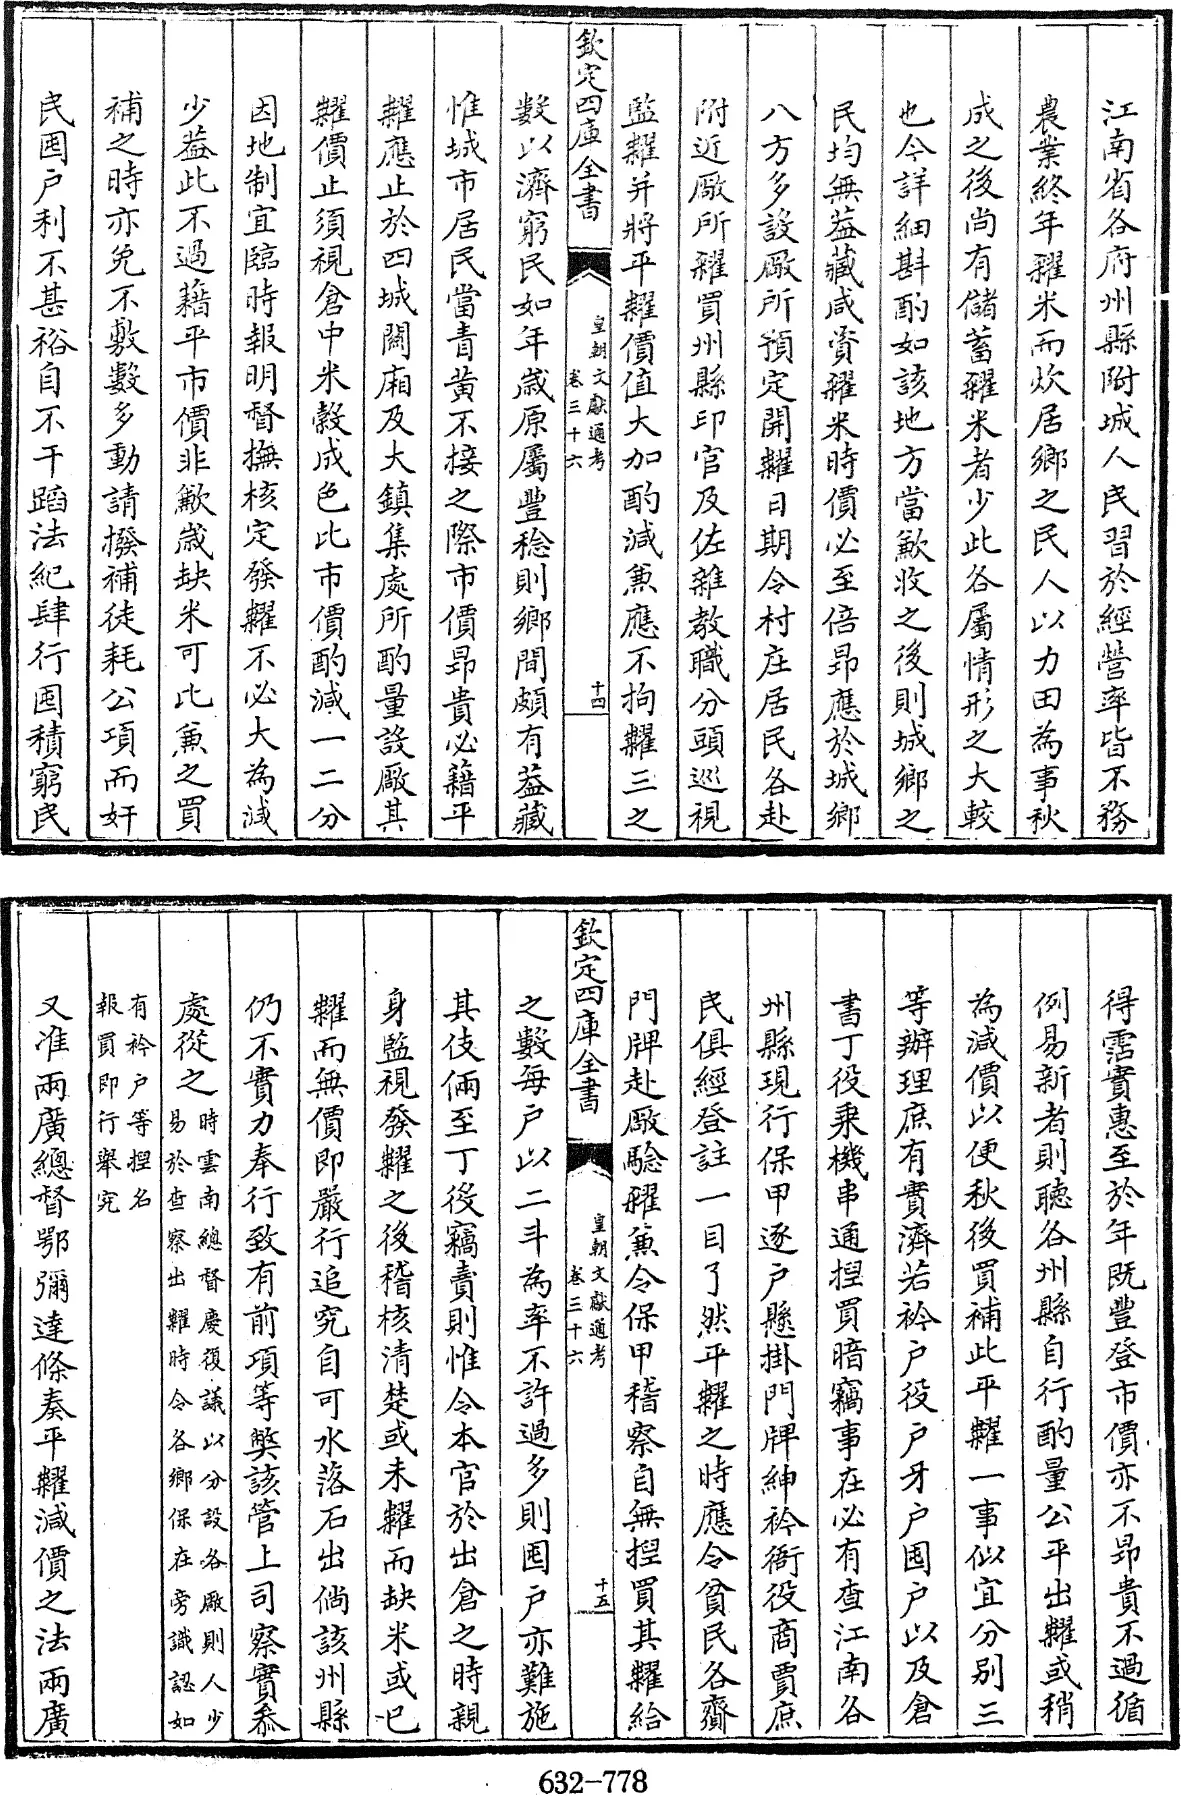 江南省各府州縣附城人民習於經營率皆不務
農業終年糴米而炊居鄉之民人以力田為事秋
成之後尚有儲蓄糴米者少此各屬情形之大較
也今詳細斟酌如該地方當歉收之後則城鄉之
民均無葢藏咸資糴米時價必至倍昂應於城鄉
八方多設厰所預定開糶日期令村庄居民各赴
附近厰所糴買州縣印官及佐雜教職分頭巡視
監糶并將平糶價值大加酌減兼應不拘糶三之
欽定四庫全書
皇朝文獻通考
卷三十六
十四
數以濟窮民如年歲原屬豐稔則鄉間頗有葢藏
惟城市居民當青黄不接之際市價昻貴必藉平
糶應止於四城關廂及大鎮集處所酌量設厰其
糶價止須視倉中米穀成色比市價酌減一二分
因地制宜臨時報明督撫核定發糶不必大為減
少葢此不過藉平市價非歉歲缺米可比兼之買
補之時亦免不敷數多動請撥補徒耗公項而奸
民囤户利不甚裕自不干蹈法紀肆行囤積窮民
得霑實惠至於年既豐登市價亦不昻貴不過循
例易新者則聽各州縣自行酌量公平出糶或稍
為減價以便秋後買補此平糶一事似宜分别三
等辦理庶有實濟若衿户役户牙户囤户以及倉
書丁役乘機串通揑買暗竊事在必有查江南各
州縣現行保甲逐户懸掛門牌紳衿衙役商賈庶
民俱經登註一目了然平糶之時應令貧民各齎
門牌赴厰驗糴兼令保甲稽察自無揑買其糶給
欽定四庫全書
皇朝文獻通考
卷三十六
十五
之數每户以二斗為率不許過多則囤户亦難施
其伎倆至丁役竊賣則惟令本官於出倉之時親
身監視發糶之後稽核清楚或未糶而缺米或已
糶而無價即嚴行追究自可水落石出倘該州縣
仍不實力奉行致有前項等獘該管上司察實叅
處從之
時雲南總督慶復議以分設各厰則人少
易於查察出糶時令各鄉保在旁識認如
有衿户等揑名
報買即行舉究
又准兩廣總督鄂彌達條奏平糶減價之法兩廣
632-778